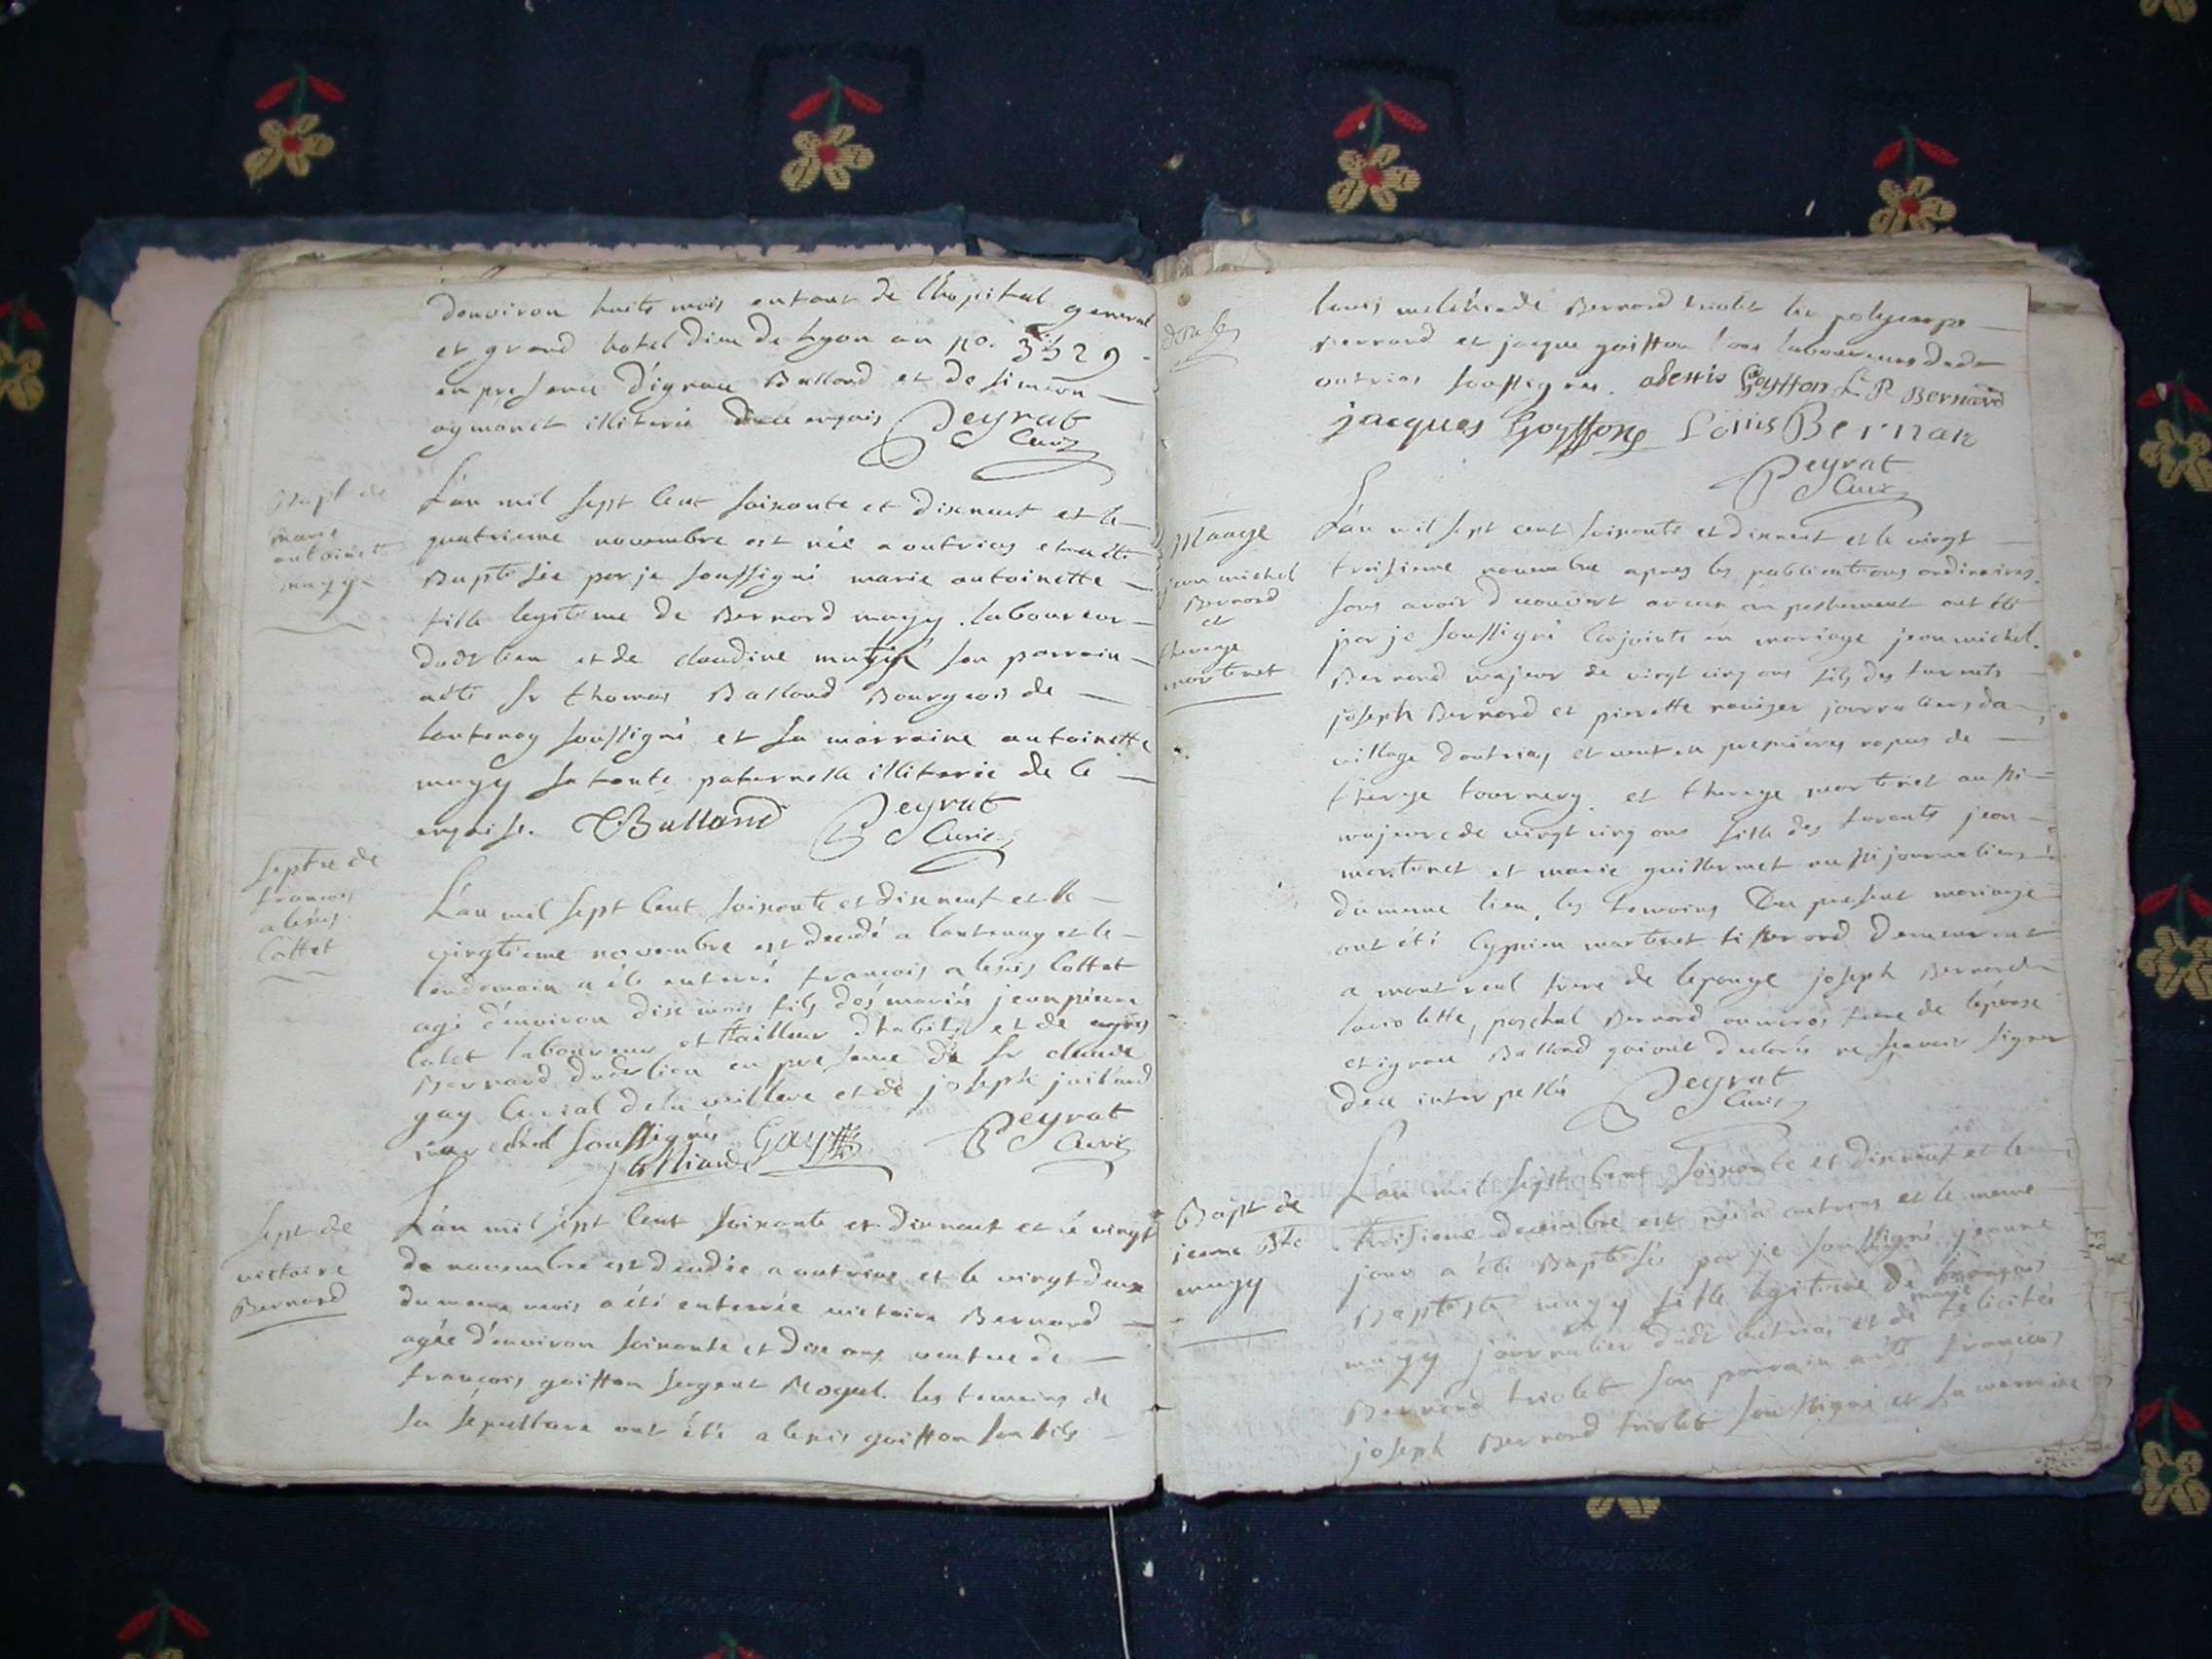 denviron huits mois enfant de lhopital general
et grand hotel dieu de Lyon au no. 3529
en presence d'ignace Balland et de simeon
aymonet illiterés dece enquis Peyrat
Curé
Bapt de
marie
antoinette
magy
L'an mil sept cent soixante et dixneuf et le
quatrieme novembre est née a outrias et a été
Baptisée par je soussigné marie antoinette
fille legitime de Bernard magy laboureur
dudt lieu et de claudine son parrain
a été Sr thomas Balland Bourgeois de
lantenay soussigné et sa marraine antoinette
magy sa tante paternelle illiterée de ce
enquise. TBalland Peyrat
Curé
septre de
francois
alexis
Cottet
L'an mil sept cent soixante et dixneuf et le
vingtieme novembre est decedé a lantenay et le
lendemain a été enterré francois alexis Cottet
agé d'environ dix mois fils des mariés jean pierre
Cotet laboureur et tailleur d'habits et de
Bernard dudt lieu en presence de Sr claude
gay curial de la et de joseph juilland
soussignés Gay Peyrat
Curé
Sept de
victoire
Bernard
L'an mil sept cent soixante et dixneuf et le vingt
de novembre est decedée a outrias et le vingt deux
du meme mois a été enterrée victoire Bernard
agée d'environ soixante et dix ans veufve de
francois goiffon sergent Royal. les temoins de
sa sepulture ont été alexis goiffon son fils
louis Bernard triolet polycarpe
Bernard et jacque goiffon tous laboureurs dudt
outrias soussignés. alexis Goyffon L P Bernard
jacques Goyffon Louis Bernar
Peyrat
Curé
Mariage
jean michel
Bernard
et
therese
martinet
L'an mil sept cent soixante et dixneuf et le vingt
troisieme novembre apres les publications ordinaires
sans avoir decouvert aucun empechement ont été
par je soussigné conjoints en mariage jean michel
Bernard majeur de vingt cinq ans fils des furents
joseph Bernard et pierrette journaliers du
village d'outrias et veuf en premieres nopces de
therese tournery et therese martinet aussi
majeure de vingt cinq ans fille des furents jean
martinet et marie guillermet aussi journaliers
du meme lieu, les temoins du present mariage
ont été Cyprien martinet tisserand demeurant
a montreal frere de lepouse joseph Bernard
laviolette, paschal Bernard frere de lépouse
et ignace Balland qui ont declarés ne scavoir signer
dece interpellés Peyrat
Curé
Bapt de
jeanne Bte
magy
L'an mil sept cent soixante et dixneuf et le
troisieme decembre est née a outrias et le meme
jour a été Baptisée par je soussigné jeanne
Baptiste magy fille legitime de francois
magy journalier dudt outrias et de marie felicité
Bernard triolet son parrain a été francois
joseph Bernard triolet soussigné et sa marraine